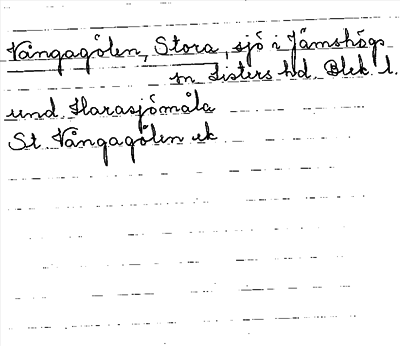 Vångagölen, Stora, sjö i Jämshögs
sn Listers hd. Blek. l.
und. Harasjömåla
St. Vångagölen ek